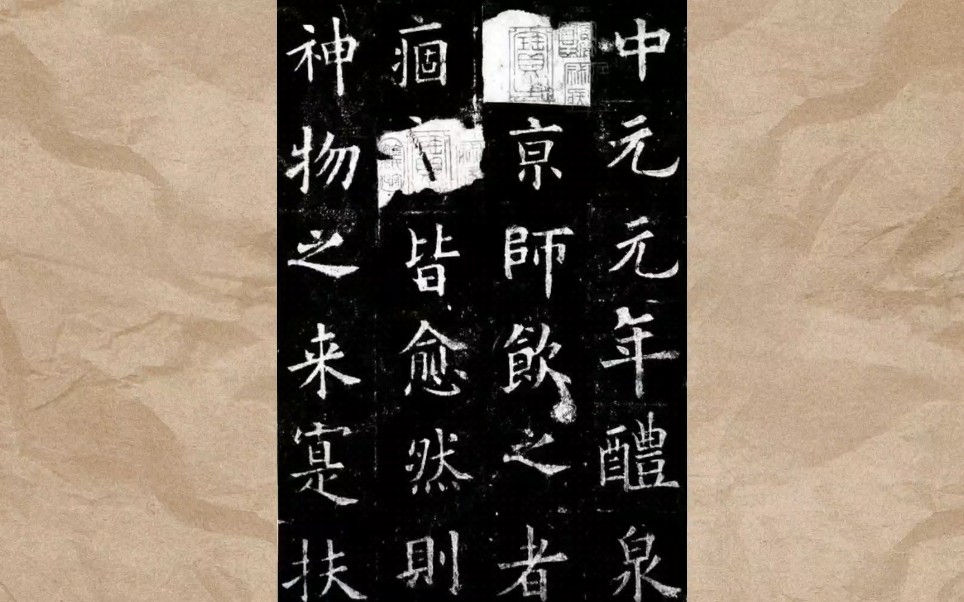 中元元年醴泉
京師飲之者
痼皆愈然則
神物之来寔扶